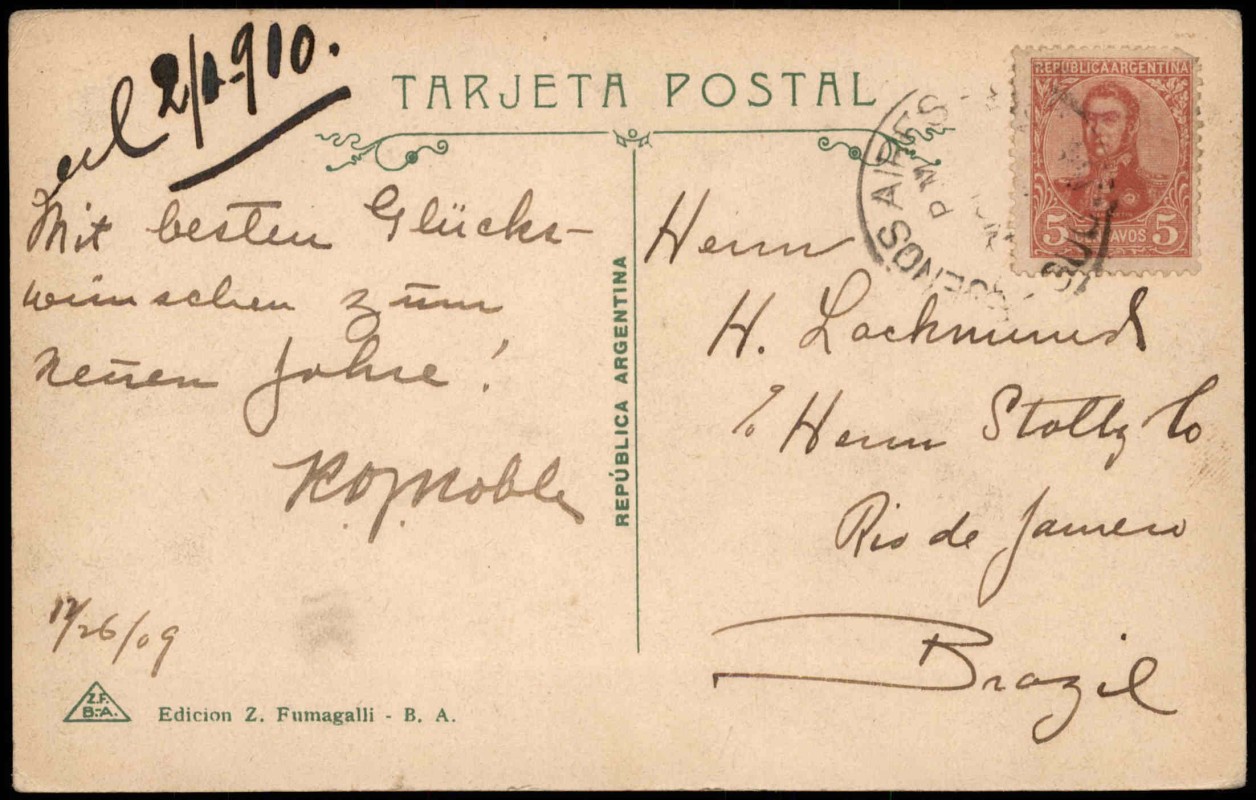 2/1 910.
TARJETA POSTAL
Mit besten Glücks-
wünschen zum
neuen Jahre!
12/26/09
Z.F.
B.-A.
Edicion Z. Fumagalli - B. A.
REPÚBLICA ARGENTINA
REPUBLICA ARGENTINA
5 AVOS 5
BUENOS AIRES
Herrn
H. Lackmund
c/o Herrn Stoltz Co
Rio de Janeiro
Brazil